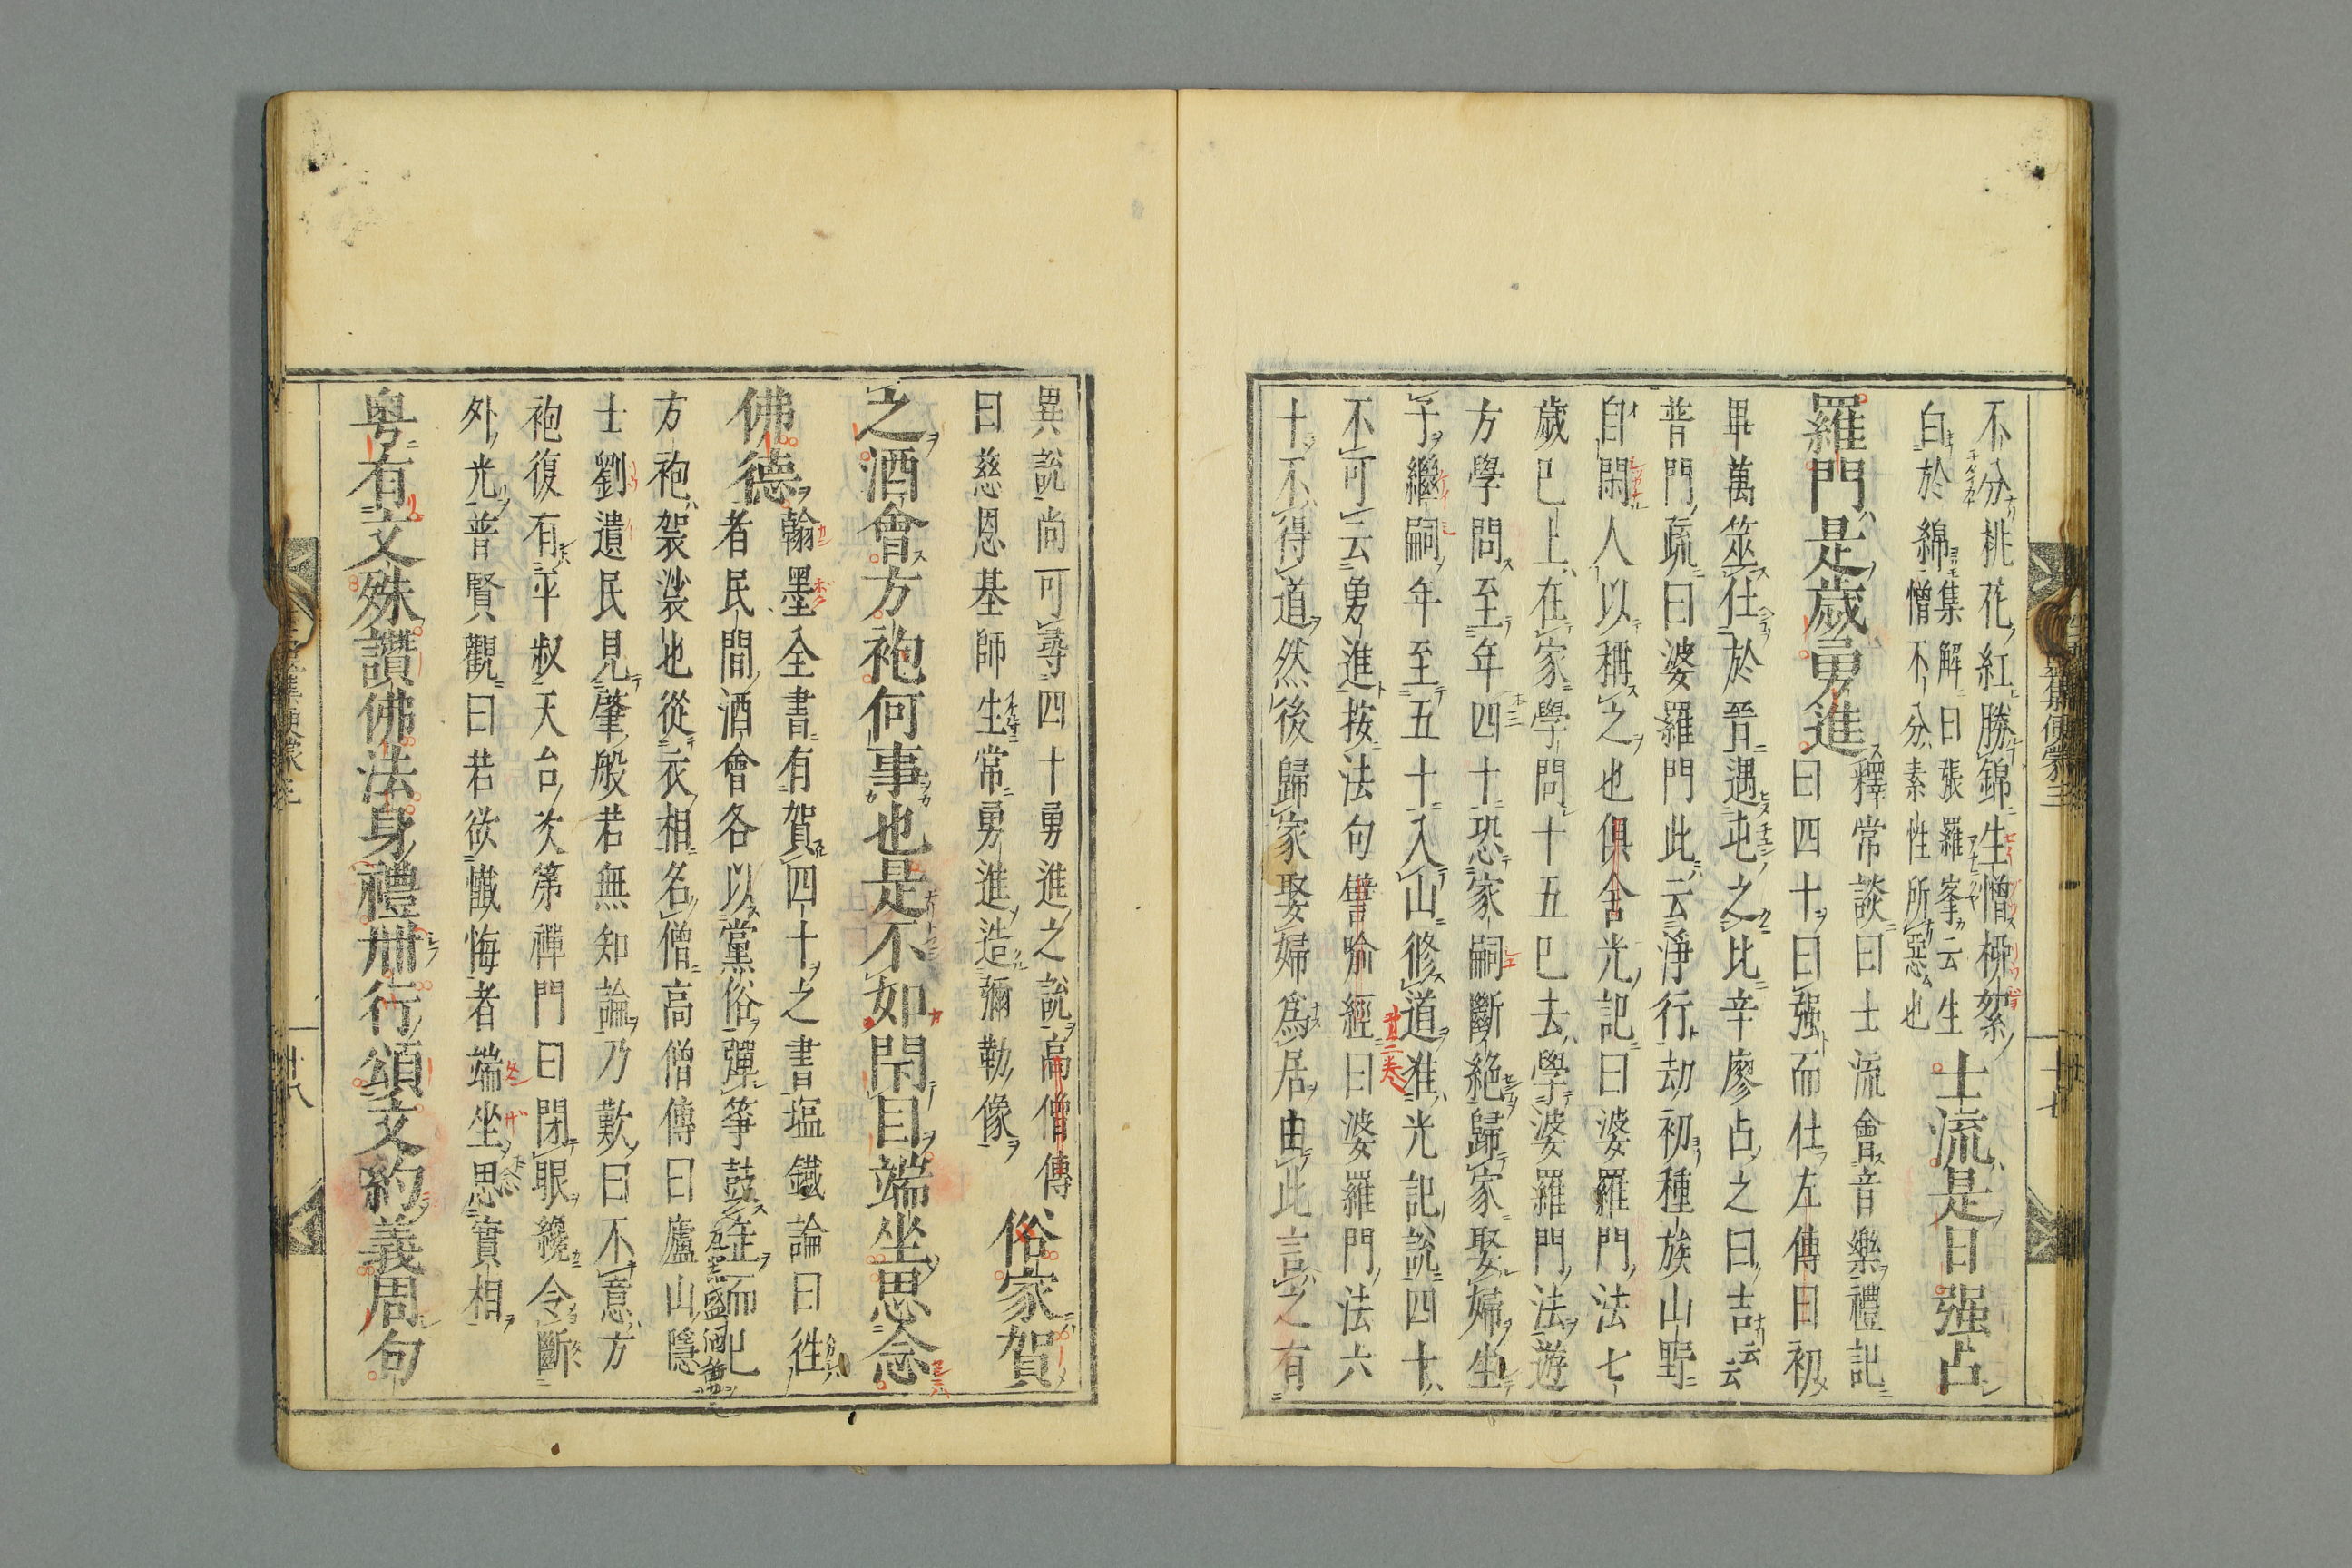 不分桃花紅勝錦生憎柳絮
白於綿集解曰張羅峯云生
憎不分素性所惡也士流是日強占
羅門是歲勇進釋常談曰士流會音樂禮記
曰四十曰強而仕左傳曰初
畢萬筮仕於晉遇屯之比辛廖占之曰吉云云
普門疏曰婆羅門此云淨行劫初種族山野
自閑人以稱之也俱舍光記曰婆羅門法七
歲已上在家學問十五已去學婆羅門法遊
方學問至年四十恐家嗣斷絕歸家娶婦生
子繼嗣年至五十入山修道准光記說四十
不可云勇進按法句譬喻經曰婆羅門法六
十不得道然後歸家娶婦爲居由此言之有
異說尚可尋四十勇進之說高僧傳
曰慈恩基師生常勇進造彌勒像俗家賀
之酒會方袍何事也是不如閇目端坐思念
佛德翰墨全書有賀四十之書塩鐵論曰徃
者民間酒會各以黨俗彈筝鼓缶而已
方袍袈裟也從衣相名僧高僧傳曰廬山隱
士劉遺民見肇般若無知論乃歎曰不意方
袍復有平叔天台次第禪門曰閉眼纔令斷
外光普賢觀曰若欲懺悔者端坐思實相
粤有文殊讚佛法身禮卌行頌文約義周句